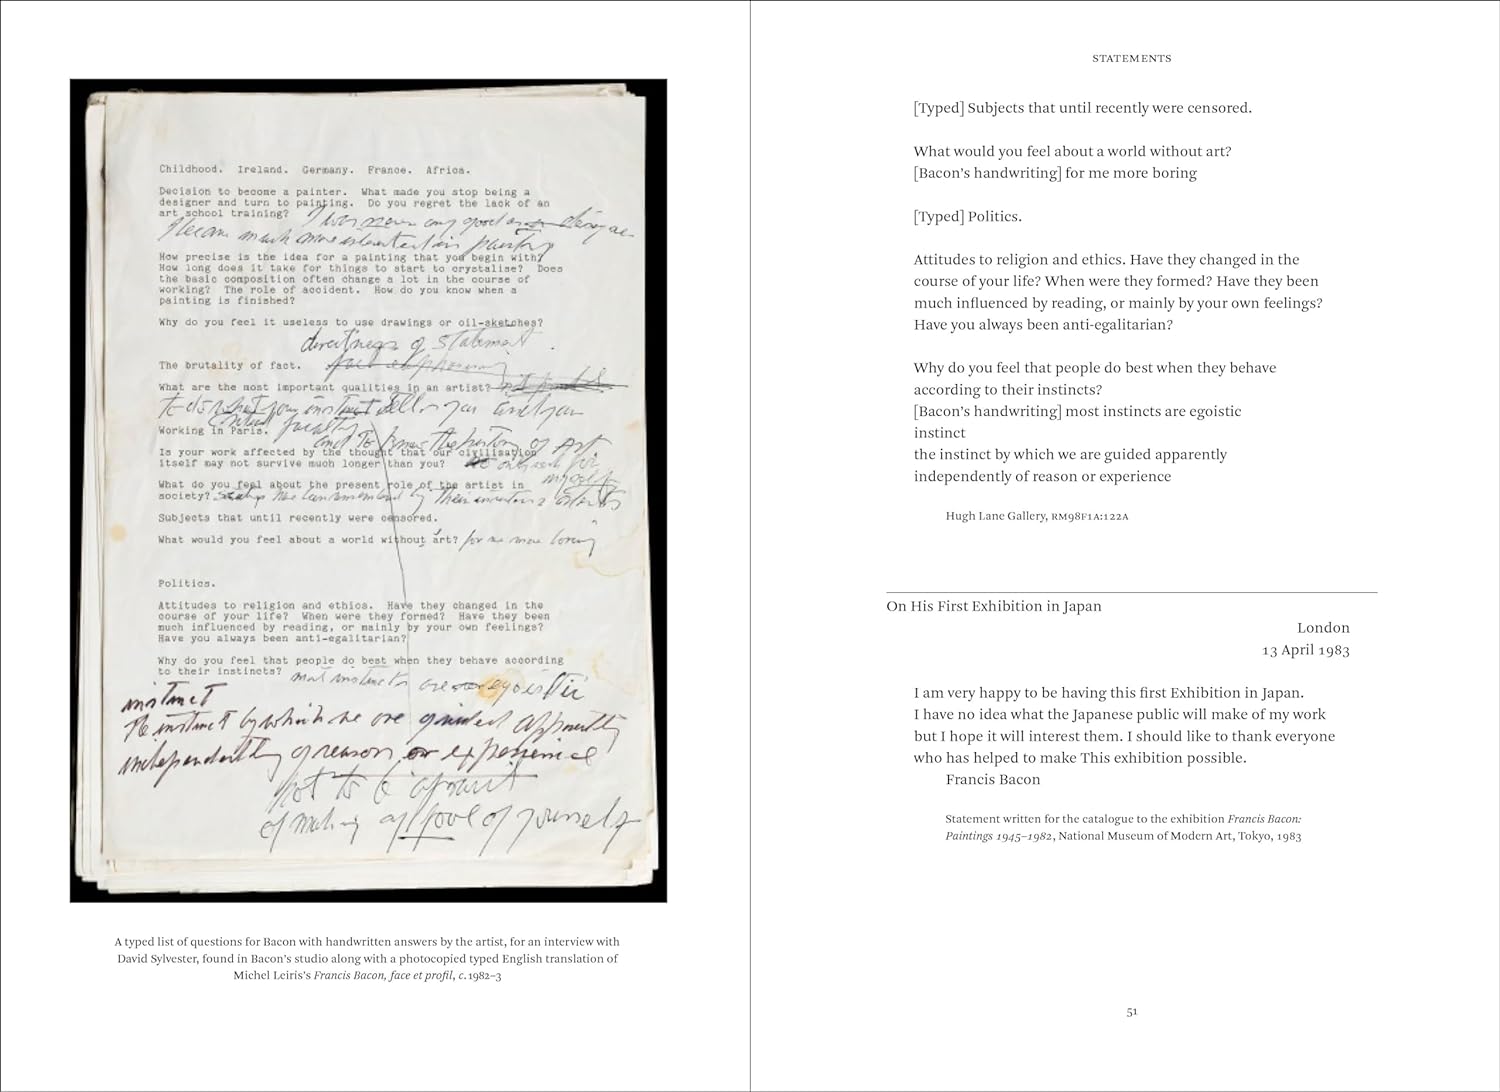 Childhood. Ireland. Germany. France. Africa.
Decision to become a painter. What made you stop being a
designer and turn to painting. Do you regret the lack of an
art school training? I was never any good as a designer
I became much more interested in painting
How precise is the idea for a painting that you begin with?
How long does it take for things to start to crystalise? Does
the basic composition often change a lot in the course of
working? The role of accident. How do you know when a
painting is finished?
Why do you feel it useless to use drawings or oil-sketches?
directness of statement
The brutality of fact.
What are the most important qualities in an artist?
to do what your instinct tells you and your
critical faculty
Working in Paris.
and to know the history of Art
Is your work affected by the thought that our civilisation
itself may not survive much longer than you? no only work for
myself
What do you feel about the present role of the artist in
society? by their artists
Subjects that until recently were censored.
What would you feel about a world without art? for me more boring
Politics.
Attitudes to religion and ethics. Have they changed in the
course of your life? When were they formed? Have they been
much influenced by reading, or mainly by your own feelings?
Have you always been anti-egalitarian?
Why do you feel that people do best when they behave according
to their instincts? most instincts are egoistic
instinct
the instinct by which we are guided apparently
independently of reason or experience
not to be afraid
of making a fool of yourself
A typed list of questions for Bacon with handwritten answers by the artist, for an interview with
David Sylvester, found in Bacon's studio along with a photocopied typed English translation of
Michel Leiris's Francis Bacon, face et profil, c. 1982–3
STATEMENTS
[Typed] Subjects that until recently were censored.
What would you feel about a world without art?
[Bacon's handwriting] for me more boring
[Typed] Politics.
Attitudes to religion and ethics. Have they changed in the
course of your life? When were they formed? Have they been
much influenced by reading, or mainly by your own feelings?
Have you always been anti-egalitarian?
Why do you feel that people do best when they behave
according to their instincts?
[Bacon's handwriting] most instincts are egoistic
instinct
the instinct by which we are guided apparently
independently of reason or experience
Hugh Lane Gallery, RM98F1A:122A
On His First Exhibition in Japan
London
13 April 1983
I am very happy to be having this first Exhibition in Japan.
I have no idea what the Japanese public will make of my work
but I hope it will interest them. I should like to thank everyone
who has helped to make This exhibition possible.
Francis Bacon
Statement written for the catalogue to the exhibition Francis Bacon:
Paintings 1945–1982, National Museum of Modern Art, Tokyo, 1983
51